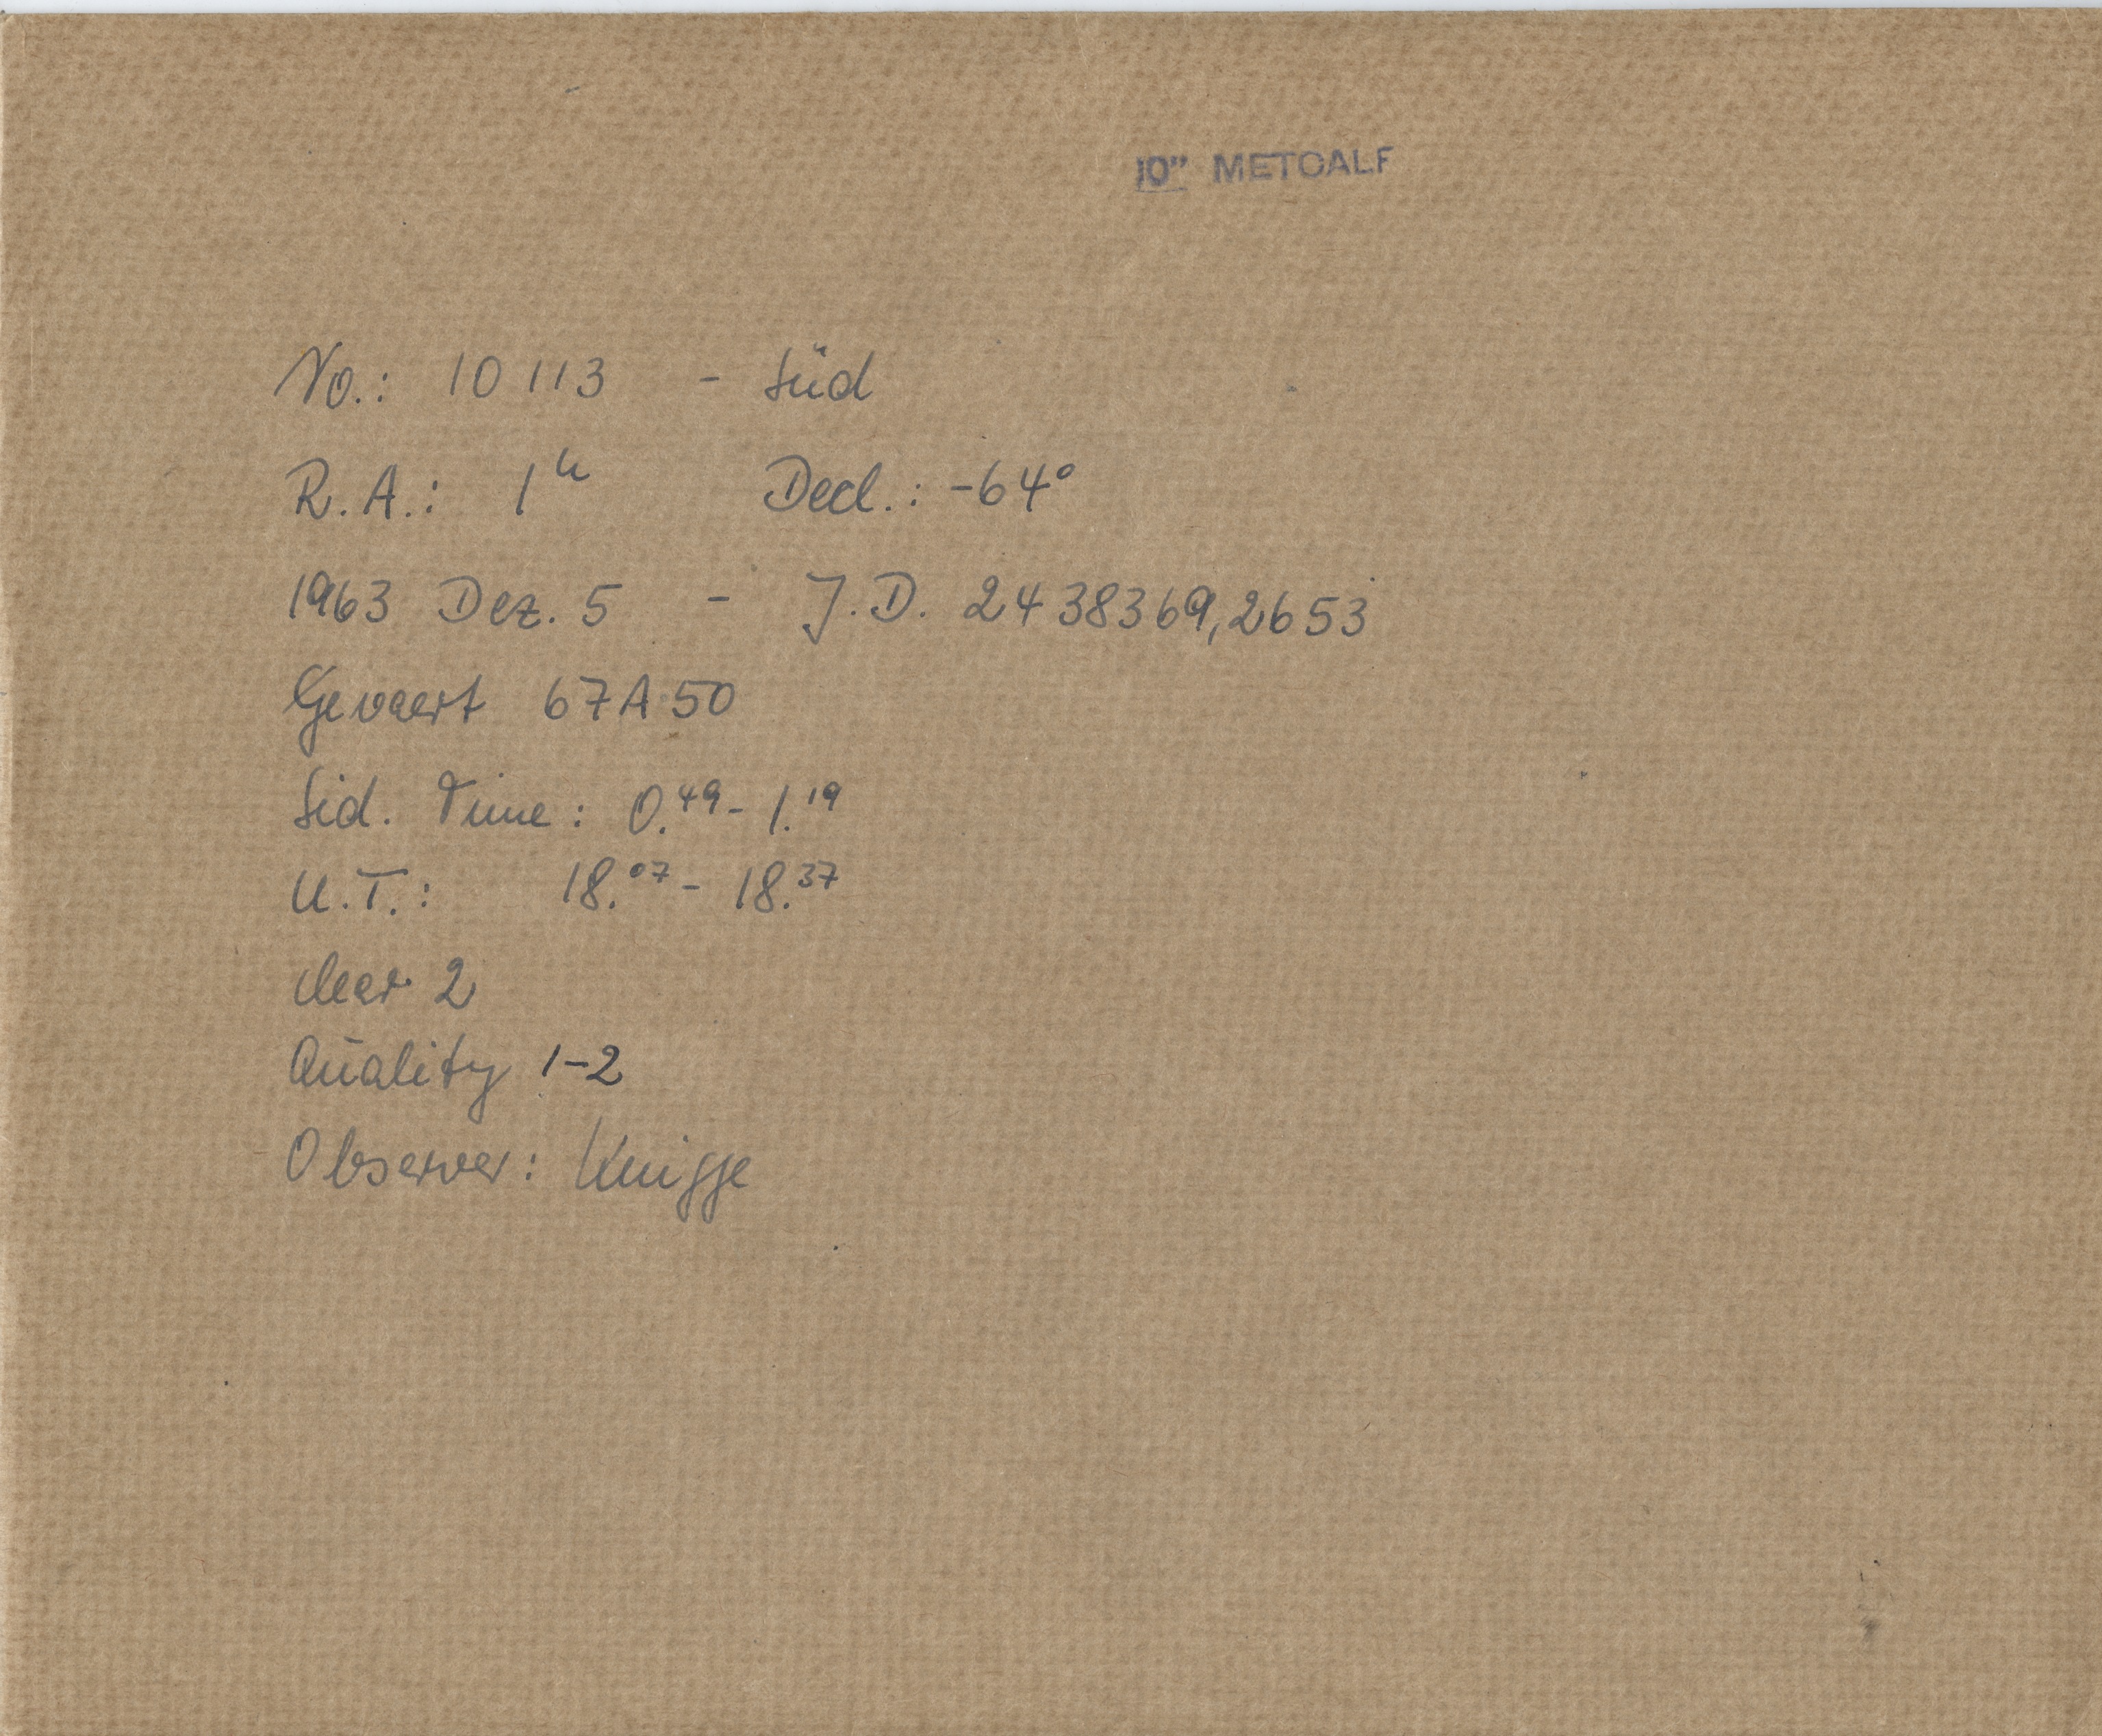 10" METCALF
No.: 10113 - Süd
R.A.: 1ʰ Decl.: -64°
1963 Dez. 5 - J.D. 2438369,2653
Gevaert 67A50
Sid. Time: 0.⁴⁹ - 1.¹⁹
U.T.: 18.⁰⁷ - 18.³⁷
clear 2
Quality 1-2
Observer: Knigge